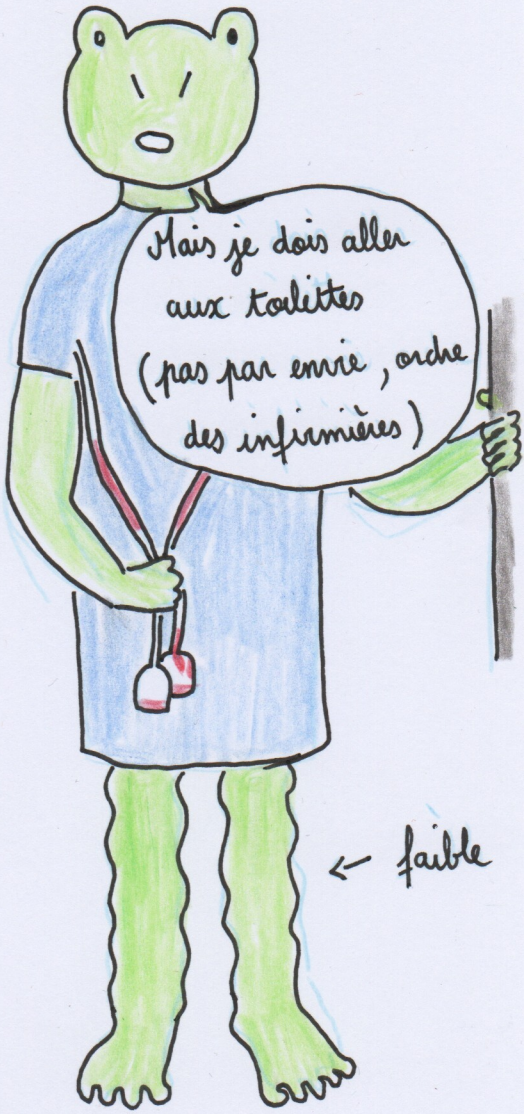 Mais je dois aller
aux toilettes
(pas par envie, ordre
des infirmières)
← faible